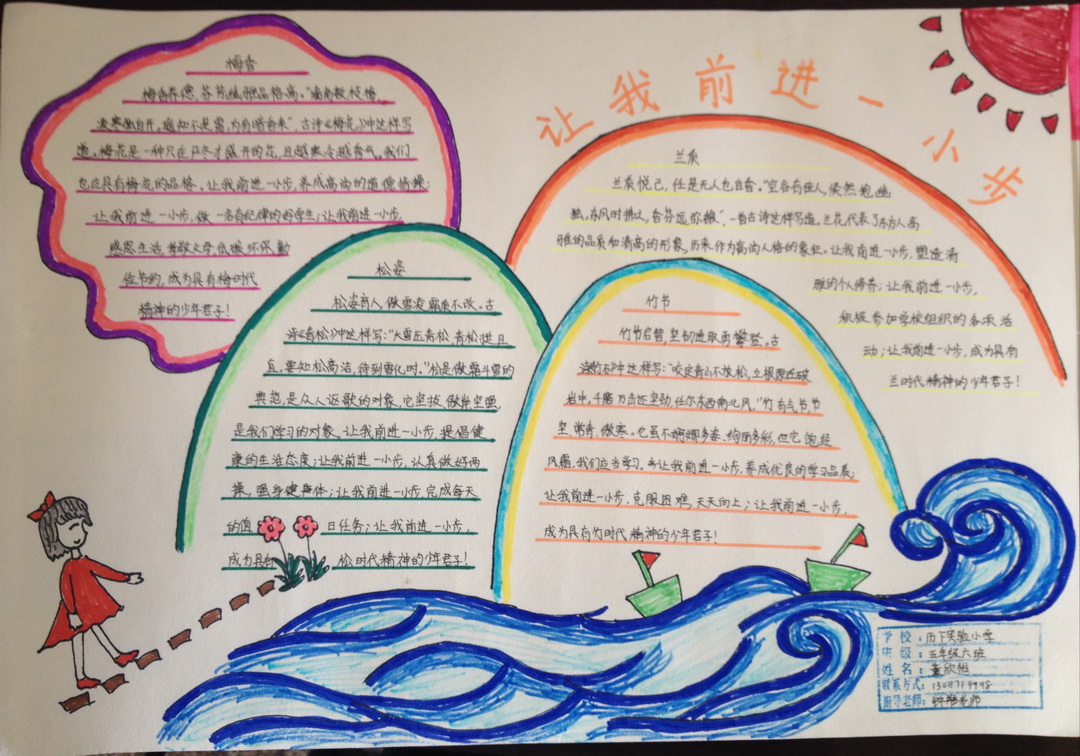 让我前进一小步
梅香
梅香养德,芬芳纯雅品格高。"墙角数枝梅,
凌寒独自开。遥知不是雪,为有暗香来"古诗《梅花》中这样写
道。梅花是一种只在严冬才盛开的花,且越寒冷越香气。我们
也应具有梅花的品格。让我前进一小步,养成高尚的道德情操;
让我前进一小步,做一名有纪律的好学生;让我前进一小步,
感恩生活,孝敬父母,低碳环保,勤
俭节约,成为具有梅时代
精神的少年君子!
兰质
兰质悦己,任是无人也自香。"空谷有佳人,倏然抱幽
独。东风时拂之,香芬远弥馥",一首古诗这样写道。兰花代表了东方人高
雅的品质和清高的形象,历来作为高尚人格的象征。让我前进一小步,塑造清
雅的个人修养;让我前进一小步,
积极参加学校组织的各项活
动;让我前进一小步,成为具有
兰时代精神的少年君子!
松姿
松姿育人,傲雪凌霜质不改。古
诗《青松》中这样写:"大雪压青松,青松挺且
直。要知松高洁,待到雪化时。"松是傲霜斗雪的
典范,是众人讴歌的对象,它坚拔、傲岸、坚强,
是我们学习的对象。让我前进一小步,提倡健
康的生活态度;让我前进一小步,认真做好两
操,强身健身体;让我前进一小步,完成每天
的值日任务;让我前进一小步,
成为具有松时代精神的少年君子!
竹节
竹节启智,坚韧进取勇攀登。古
诗《竹石》中这样写:"咬定青山不放松,立根原在破
岩中。千磨万击还坚劲,任尔东西南北风。"竹有气节,节
坚、常青、傲寒。它虽不婀娜多姿、绚丽多彩,但它饱经
风霜,我们应当学习。让我前进一小步,养成优良的学习品质;
让我前进一小步,克服困难,天天向上;让我前进一小步,
成为具有竹时代精神的少年君子!
学校:历下实验小学
班级:五年级六班
姓名:董欣
联系方式:
指导老师:钟 老师